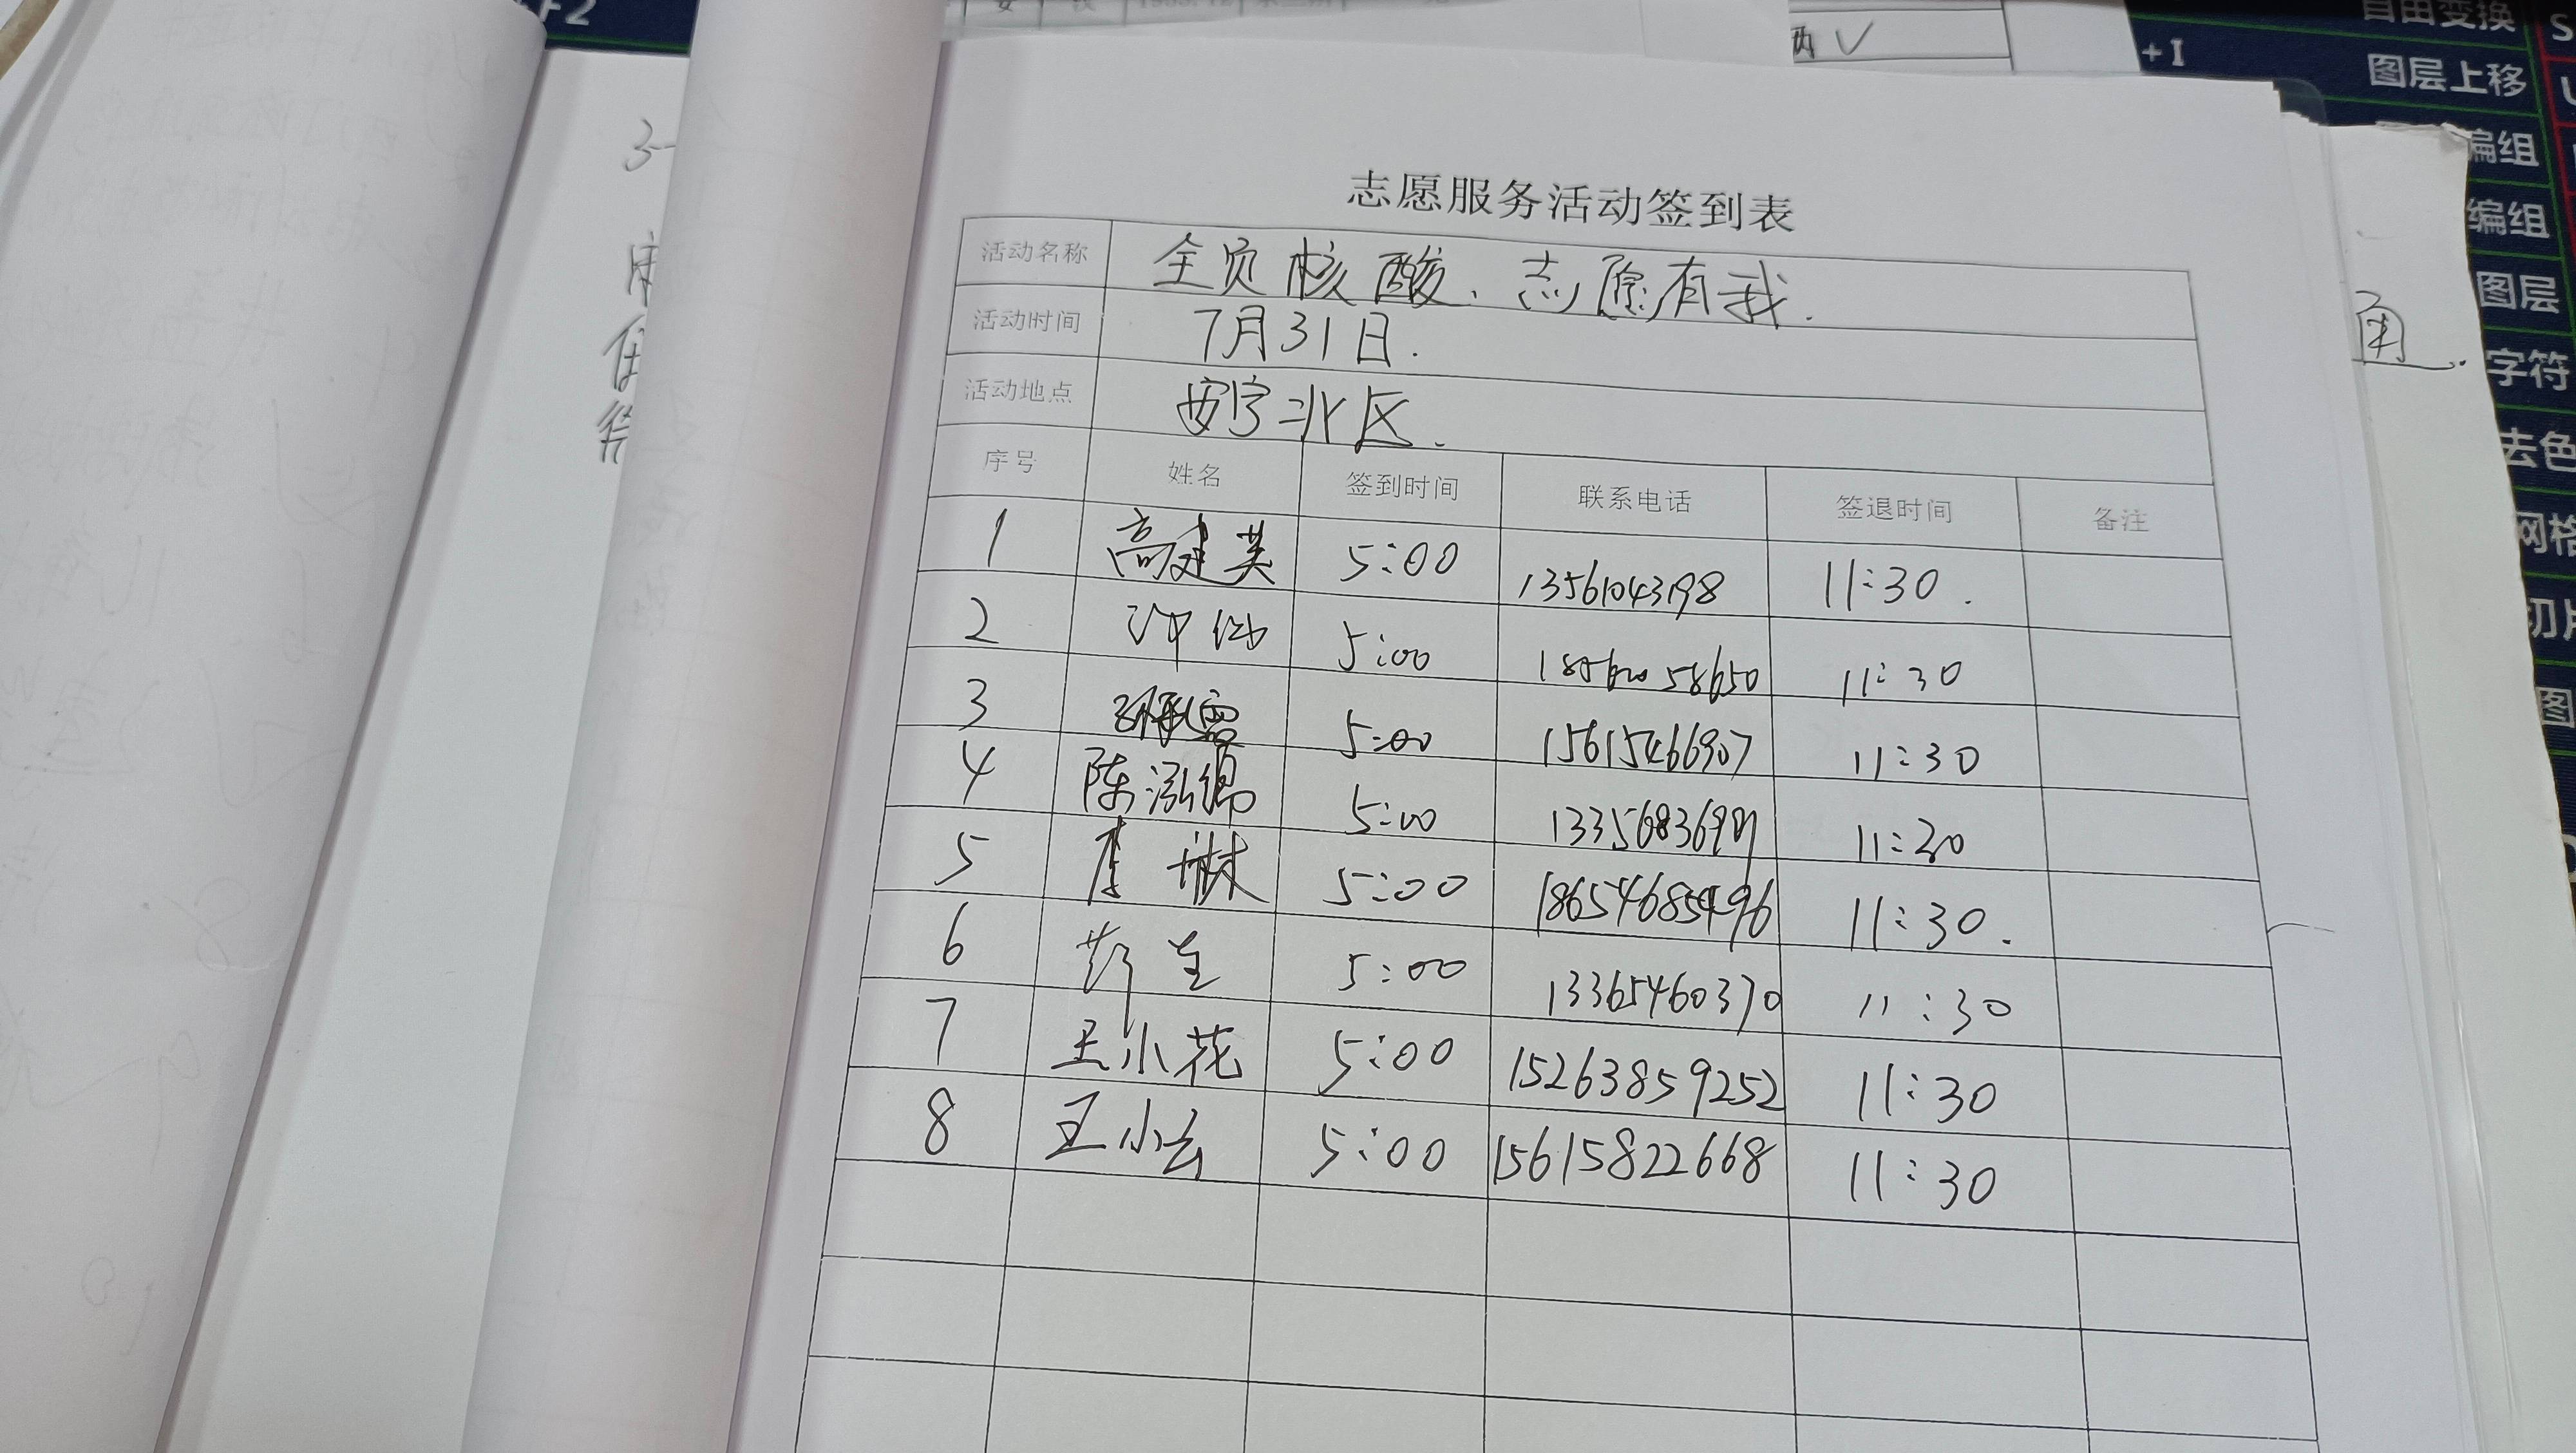 自由变换
+I
图层上移
编组
编组
图层
字符
去色
网格
志愿服务活动签到表
活动名称 全员核酸、志愿有我.
活动时间 7月31日.
活动地点 安宁北区.
序号 姓名 签到时间 联系电话 签退时间 备注
1 高建英 5:00 13561043198 11:30.
2 5:00 11:30
3 5:00 15615466907 11:30
4 陈泓锦 5:00 11:30
5 李琳 5:00 11:30.
6 5:00 13365460370 11:30
7 王小花 5:00 15263859252 11:30
8 王小云 5:00 15615822668 11:30